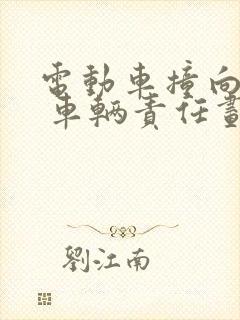 電動車撞向
車輛責任畫
劉江南